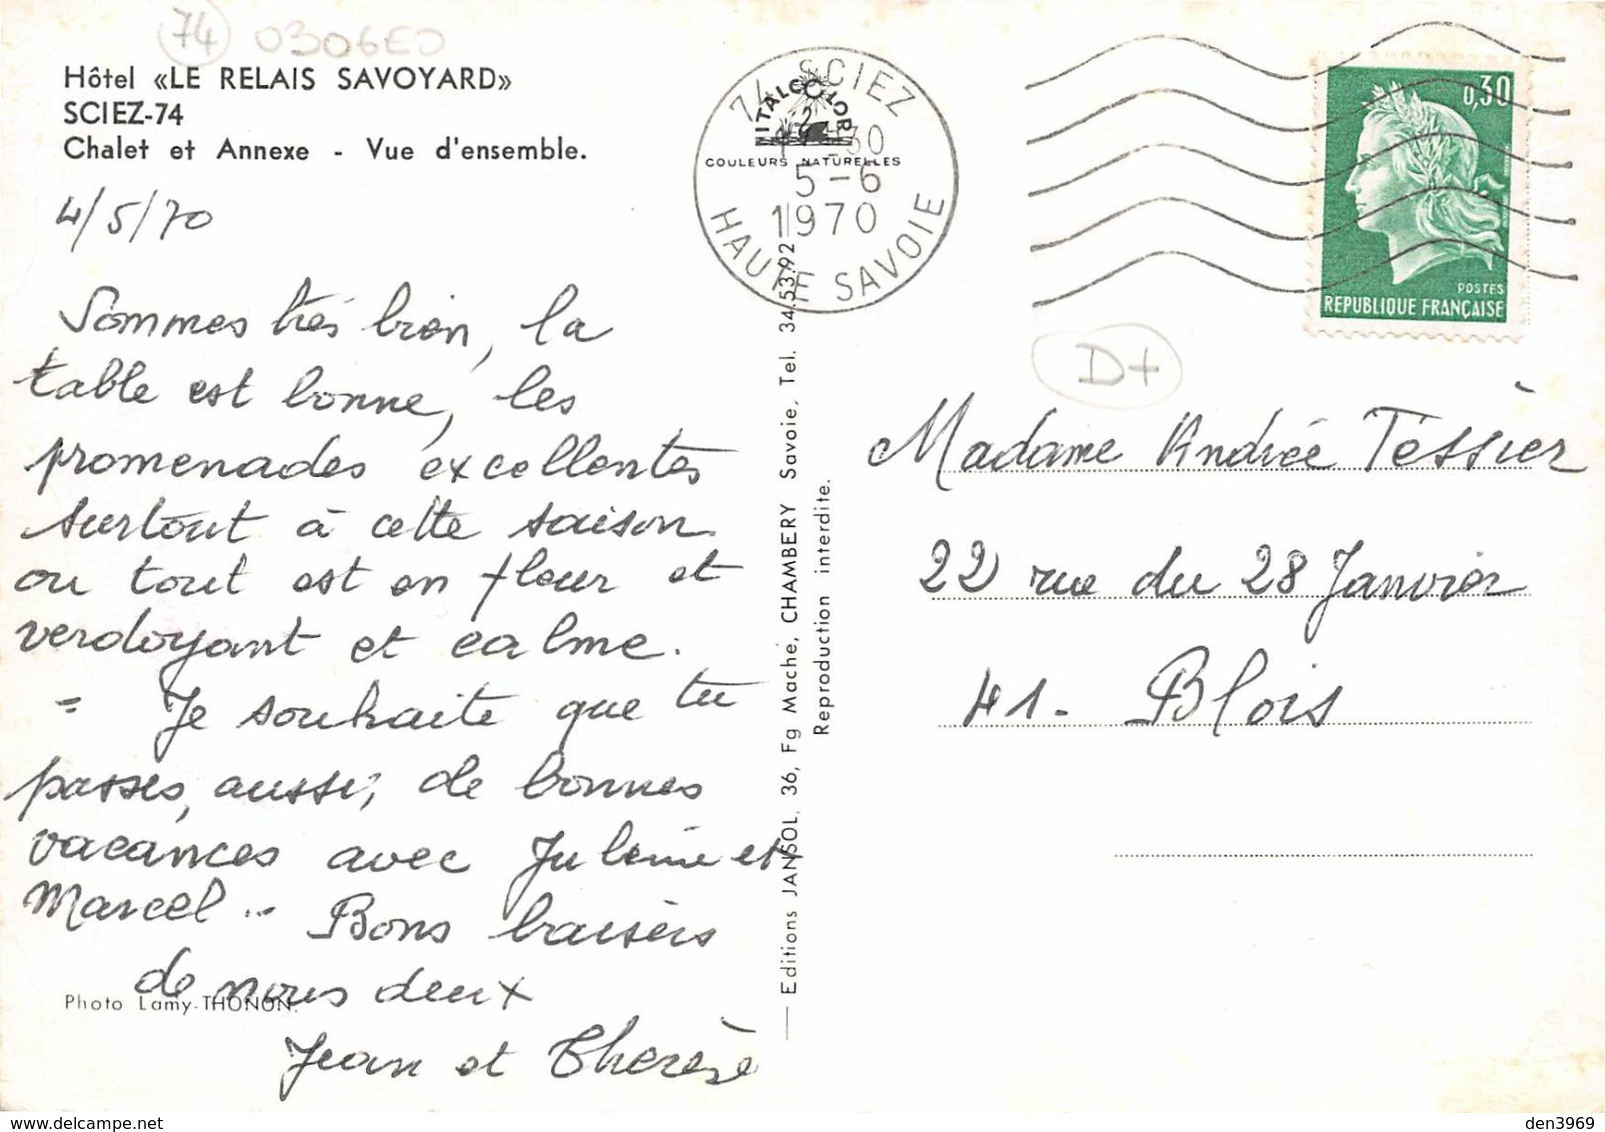 74 0306ED
Hôtel «LE RELAIS SAVOYARD»
SCIEZ-74
Chalet et Annexe - Vue d'ensemble.
4/5/70
Sommes très bien, la
table est bonne, les
promenades excellentes
surtout à cette saison
ou tout est en fleur et
verdoyant et calme.
= Je souhaite que tu
passes, aussi, de bonnes
vacances avec et
Marcel.. Bons baisers
de nous deux
Jean et Therèse
Photo Lamy-THONON.
74 SCIEZ
ITALCOLOR
COULEURS NATURELLES
5-6
1970
HAUTE SAVOIE
Editions JANSOL, 36, Fg Maché, CHAMBERY Savoie, Tel. 34.53.92
Reproduction interdite.
0,30
POSTES
REPUBLIQUE FRANÇAISE
D+
Madame Andrée Téssier
22 rue du 28 Janvier
41- Blois
den3969